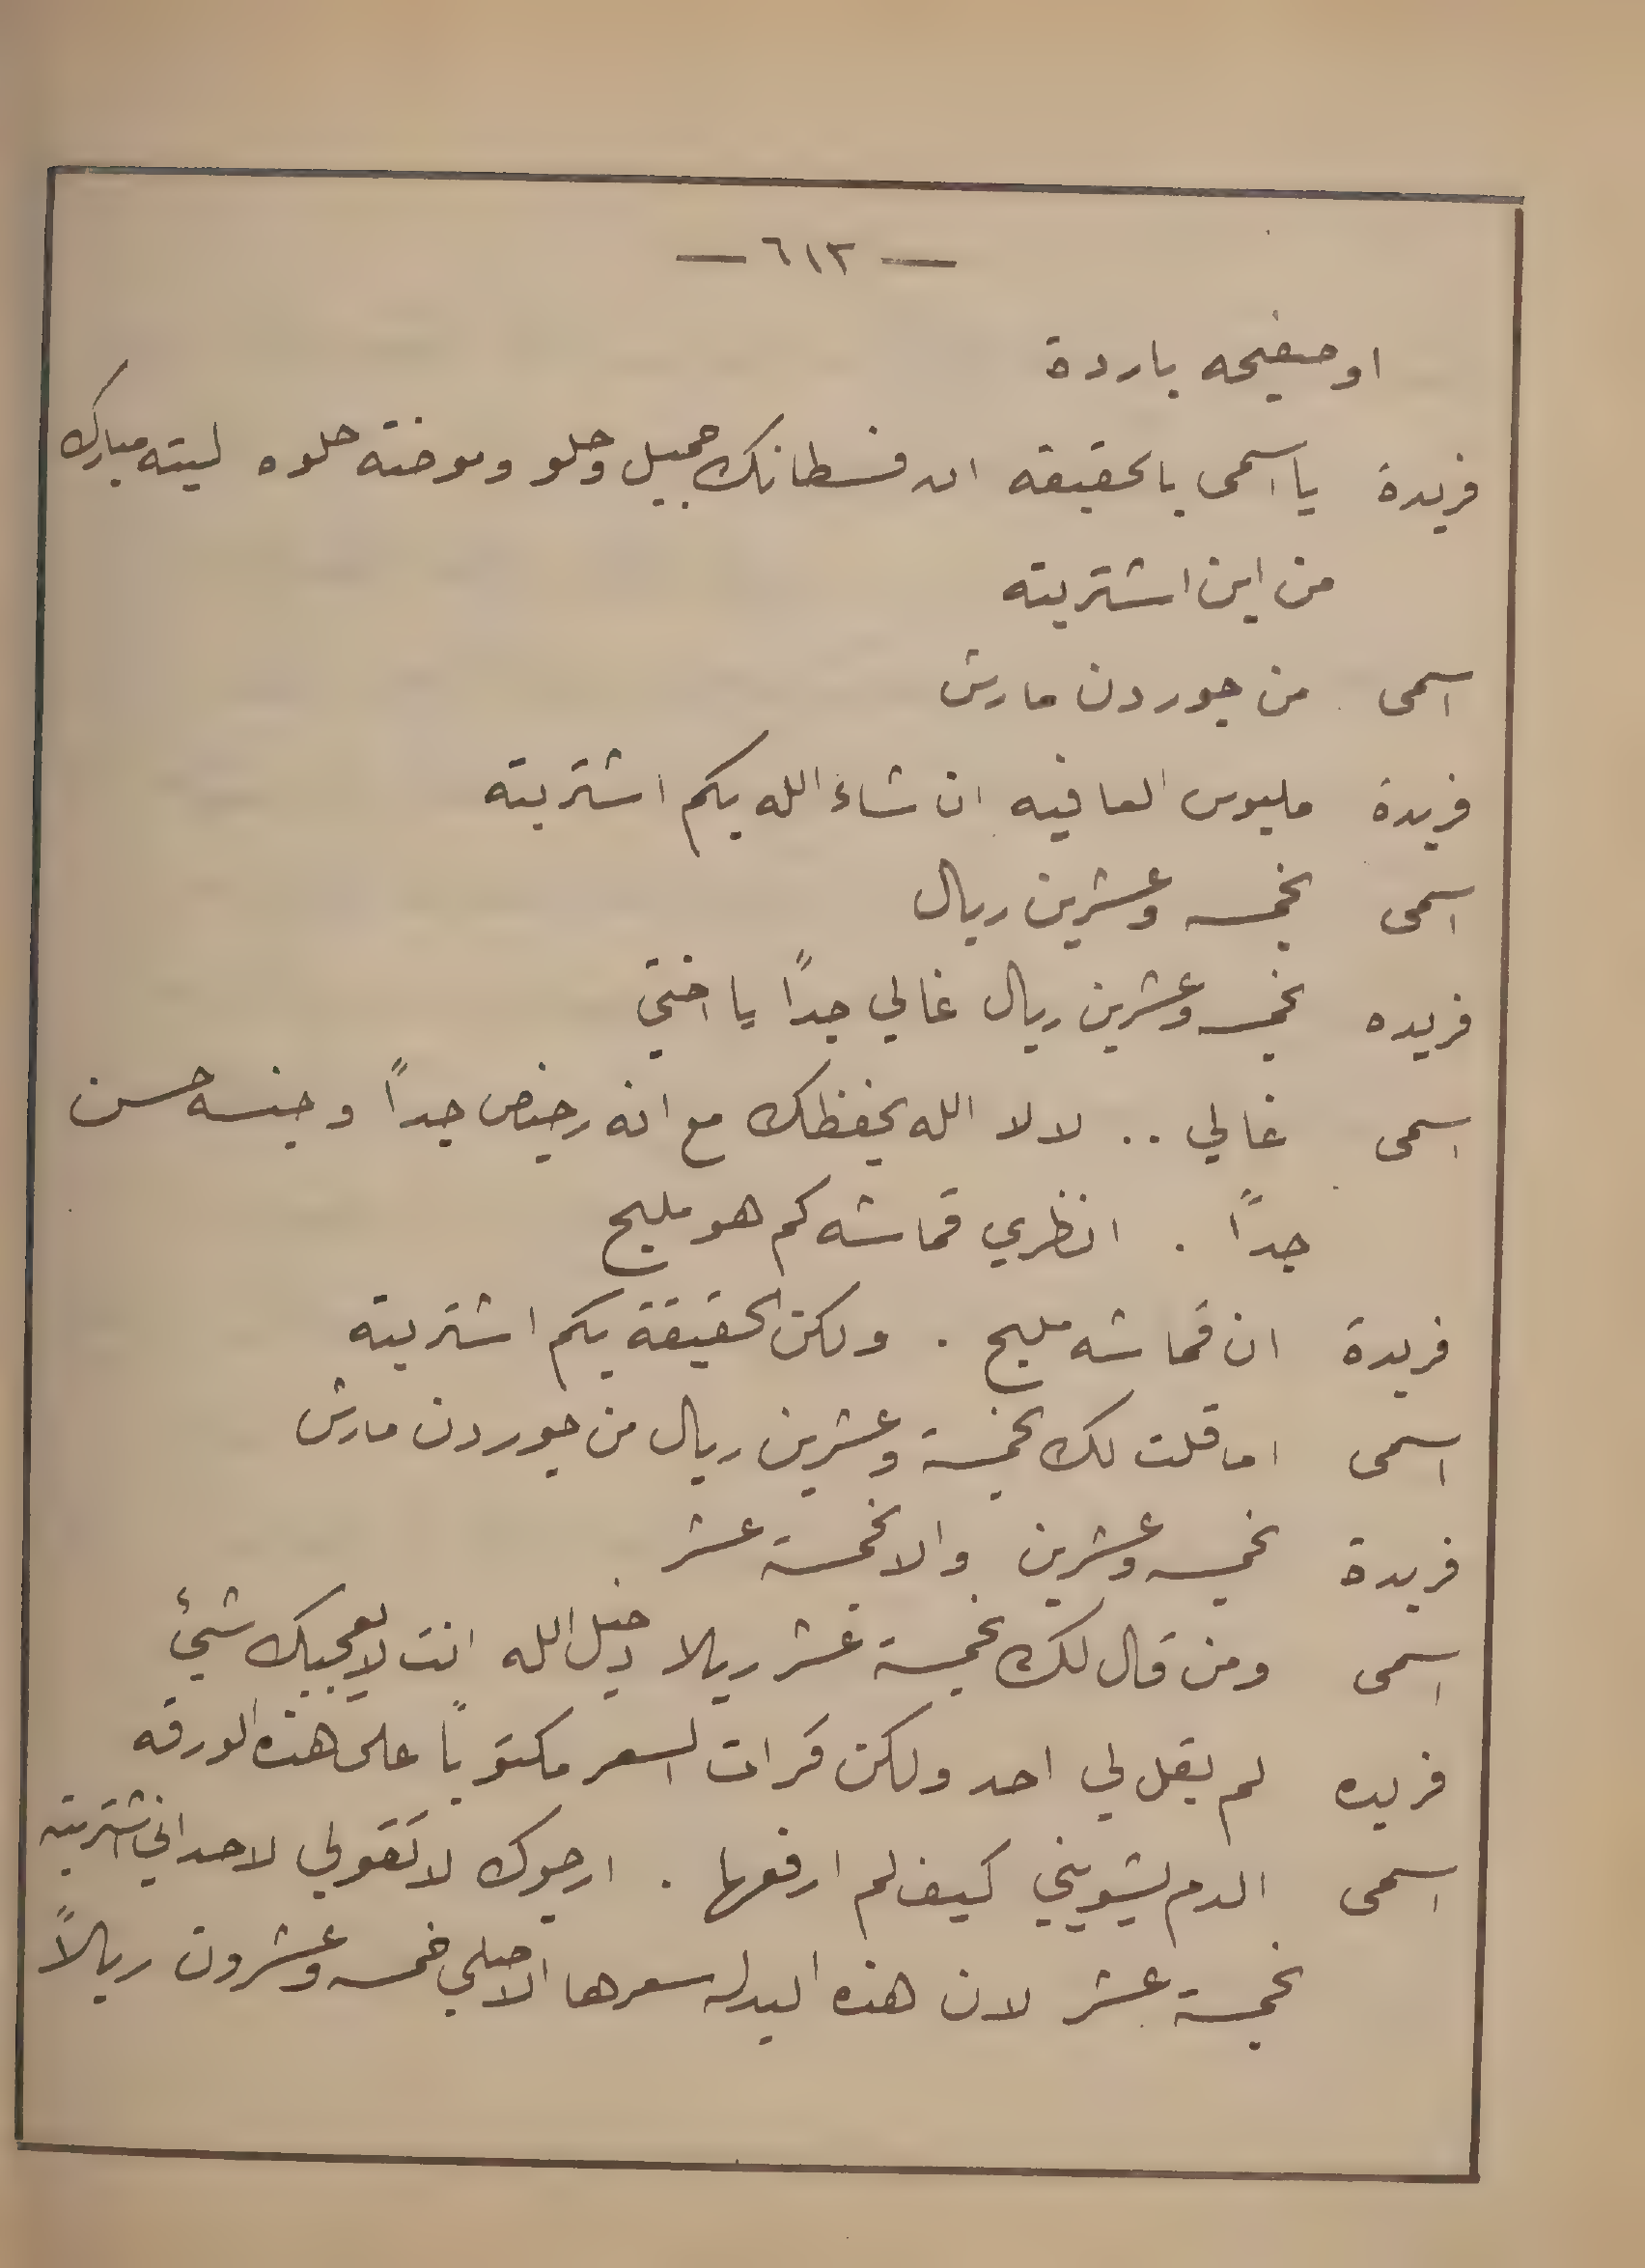 — ٦١٢ —
او صفيحه باردة
فريدة يا اسمى بالحقيقه ان فسطانك جميل وحلو وموضته حلوه ليته مبارك
من اين اشتريته
اسمى من جوردن مارش
فريدة ملبوس العافيه ان شاء الله بكم اشتريته
اسمى بخمسه وعشرين ريال
فريده بخمسه وعشرين ريال غالي جداً يا اختي
اسمى غالي .. لا لا الله يحفظك مع انه رخيص جداً وجنسه حسن
جداً . انظري قماشه كم هو مليح
فريدة ان قماشه مليح . ولكن الحقيقة بكم اشتريته
اسمى اما قلت لك بخمسة وعشرين ريال من جوردن مارش
فريدة بخمسه وعشرين والا بخمسة عشر
اسمى ومن قال لك بخمسة عشر ريالا دخيل الله انت لا يعجبك شيئ
فريده لم يقل لي احد ولكن قرات السعر مكتوباً على هذه الورقه
اسمى الدم يشويني كيف لم ارفعها . ارجوك لا تقولي لاحد اني اشتريته
بخمسة عشر لان هذه البدله سعرها الاصلي خمسه وعشرون ريالاً